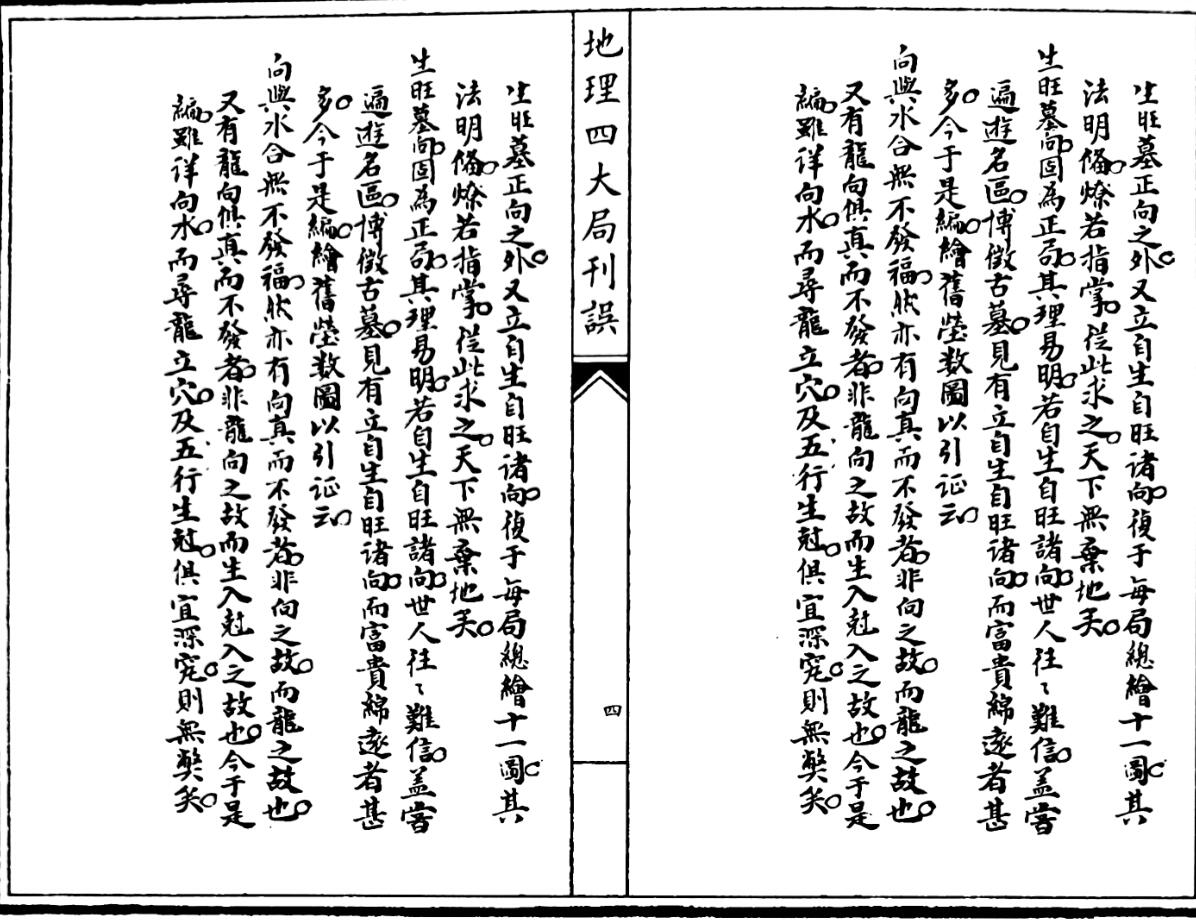 生旺墓正向之外。又立自生自旺诸向。復于每局總繪十一圖。其
法明備。燎若指掌。從此求之。天下無棄地矣。
生旺墓向。固為正局。其理易明。若自生自旺諸向。世人往々難信。盖嘗
遍遊名區。博徵古墓。見有立自生自旺诸向。而富貴綿遠者甚
多。今于是編。繪舊塋数圖以引证云。
向與水合。無不發福。然亦有向真而不發者。非向之故。而龍之故也。
又有龍向俱真而不發者。非龍向之故。而生入尅入之故也。今于是
編。雖详向水。而尋龍立穴。及五行生尅。俱宜深究。則無弊矣。
地理四大局刊誤
四
生旺墓正向之外。又立自生自旺诸向。復于每局總繪十一圖。其
法明備。燎若指掌。從此求之。天下無棄地矣。
生旺墓向。固為正局。其理易明。若自生自旺諸向。世人往々難信。盖嘗
遍遊名區。博徵古墓。見有立自生自旺诸向。而富貴綿遠者甚
多。今于是編。繪舊塋数圖以引证云。
向與水合。無不發福。然亦有向真而不發者。非向之故。而龍之故也。
又有龍向俱真而不發者。非龍向之故。而生入尅入之故也。今于是
編。雖详向水。而尋龍立穴。及五行生尅。俱宜深究。則無弊矣。